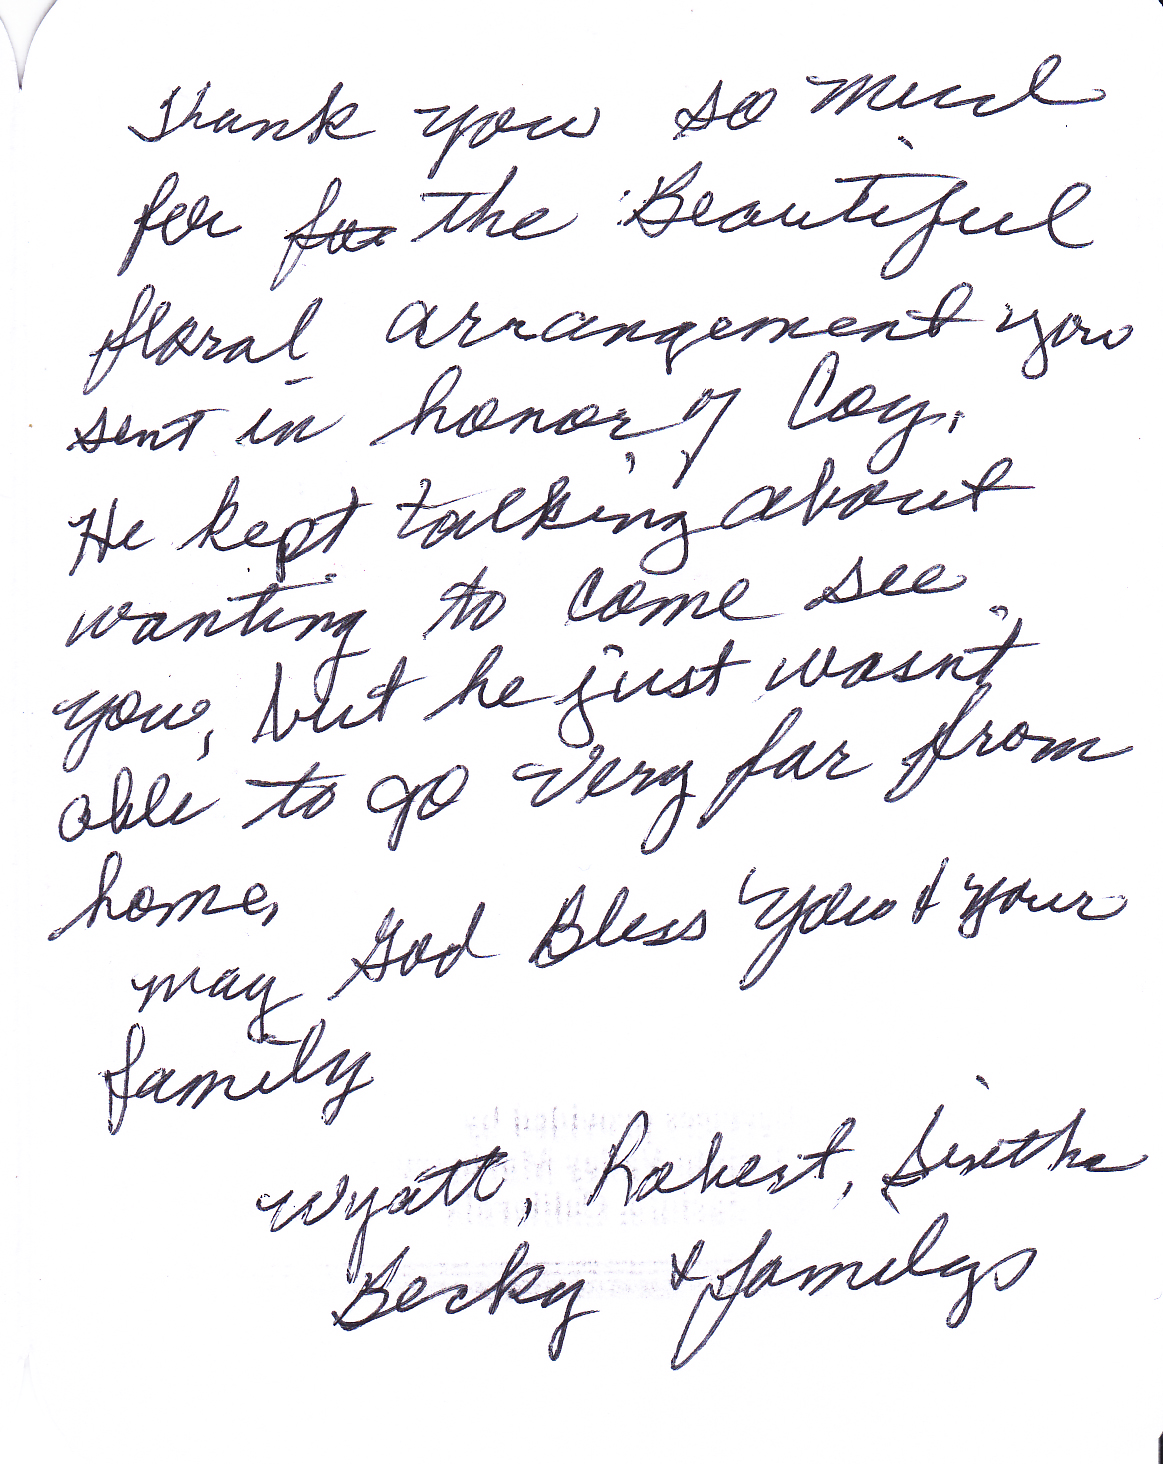 Thank you so much
for for the Beautiful
floral arrangement you
sent in honor of Coy.
He kept talking about
wanting to come see
you, but he just wasn't
able to go very far from
home.
may God Bless you & your
family
Wyatt, Robert,
Becky & familys